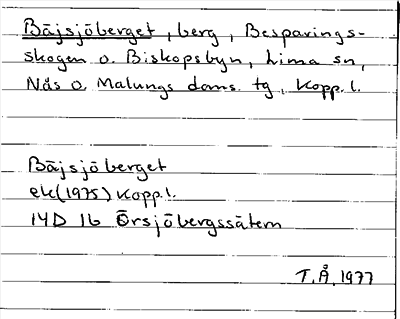 Bäjsjöberget, berg, Besparings-
skogen o. Biskopsbyn, Lima sn,
Nås o. Malungs doms. tg, Kopp. l.
Bäjsjöberget
ek(1975) Kopp. l.
14D 1b Örsjöbergssätern
T.Å. 1977